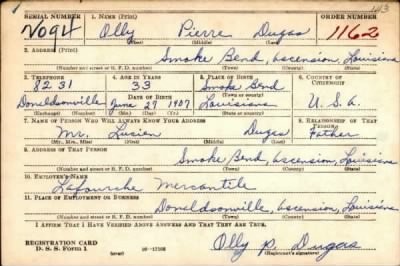 143
SERIAL NUMBER 1. NAME (Print) ORDER NUMBER
V094 Olly Pierre Dugas 1162
(First) (Middle) (Last)
2. ADDRESS (Print)
Smoke Bend, Ascension, Louisiana
(Number and street or R. F. D. number) (Town) (County) (State)
3. TELEPHONE 4. AGE IN YEARS 5. PLACE OF BIRTH 6. COUNTRY OF CITIZENSHIP
8231 33 Smoke Bend
DATE OF BIRTH (Town or county)
Donaldsonville June 27 1907 Louisiana U.S.A.
(Exchange) (Number) (Mo.) (Day) (Yr.) (State or country)
7. NAME OF PERSON WHO WILL ALWAYS KNOW YOUR ADDRESS 8. RELATIONSHIP OF THAT PERSON
Mr. Lucien Dugas Father
(Mr., Mrs., Miss) (First) (Middle) (Last)
9. ADDRESS OF THAT PERSON
Smoke Bend, Ascension, Louisiana
(Number and street or R. F. D. number) (Town) (County) (State)
10. EMPLOYER'S NAME
Lafourche Mercantile
11. PLACE OF EMPLOYMENT OR BUSINESS
Donaldsonville, Ascension, Louisiana
(Number and street or R. F. D. number) (Town) (County) (State)
I AFFIRM THAT I HAVE VERIFIED ABOVE ANSWERS AND THAT THEY ARE TRUE.
REGISTRATION CARD
D. S. S. Form 1 (over) Olly P. Dugas
(Registrant's signature)